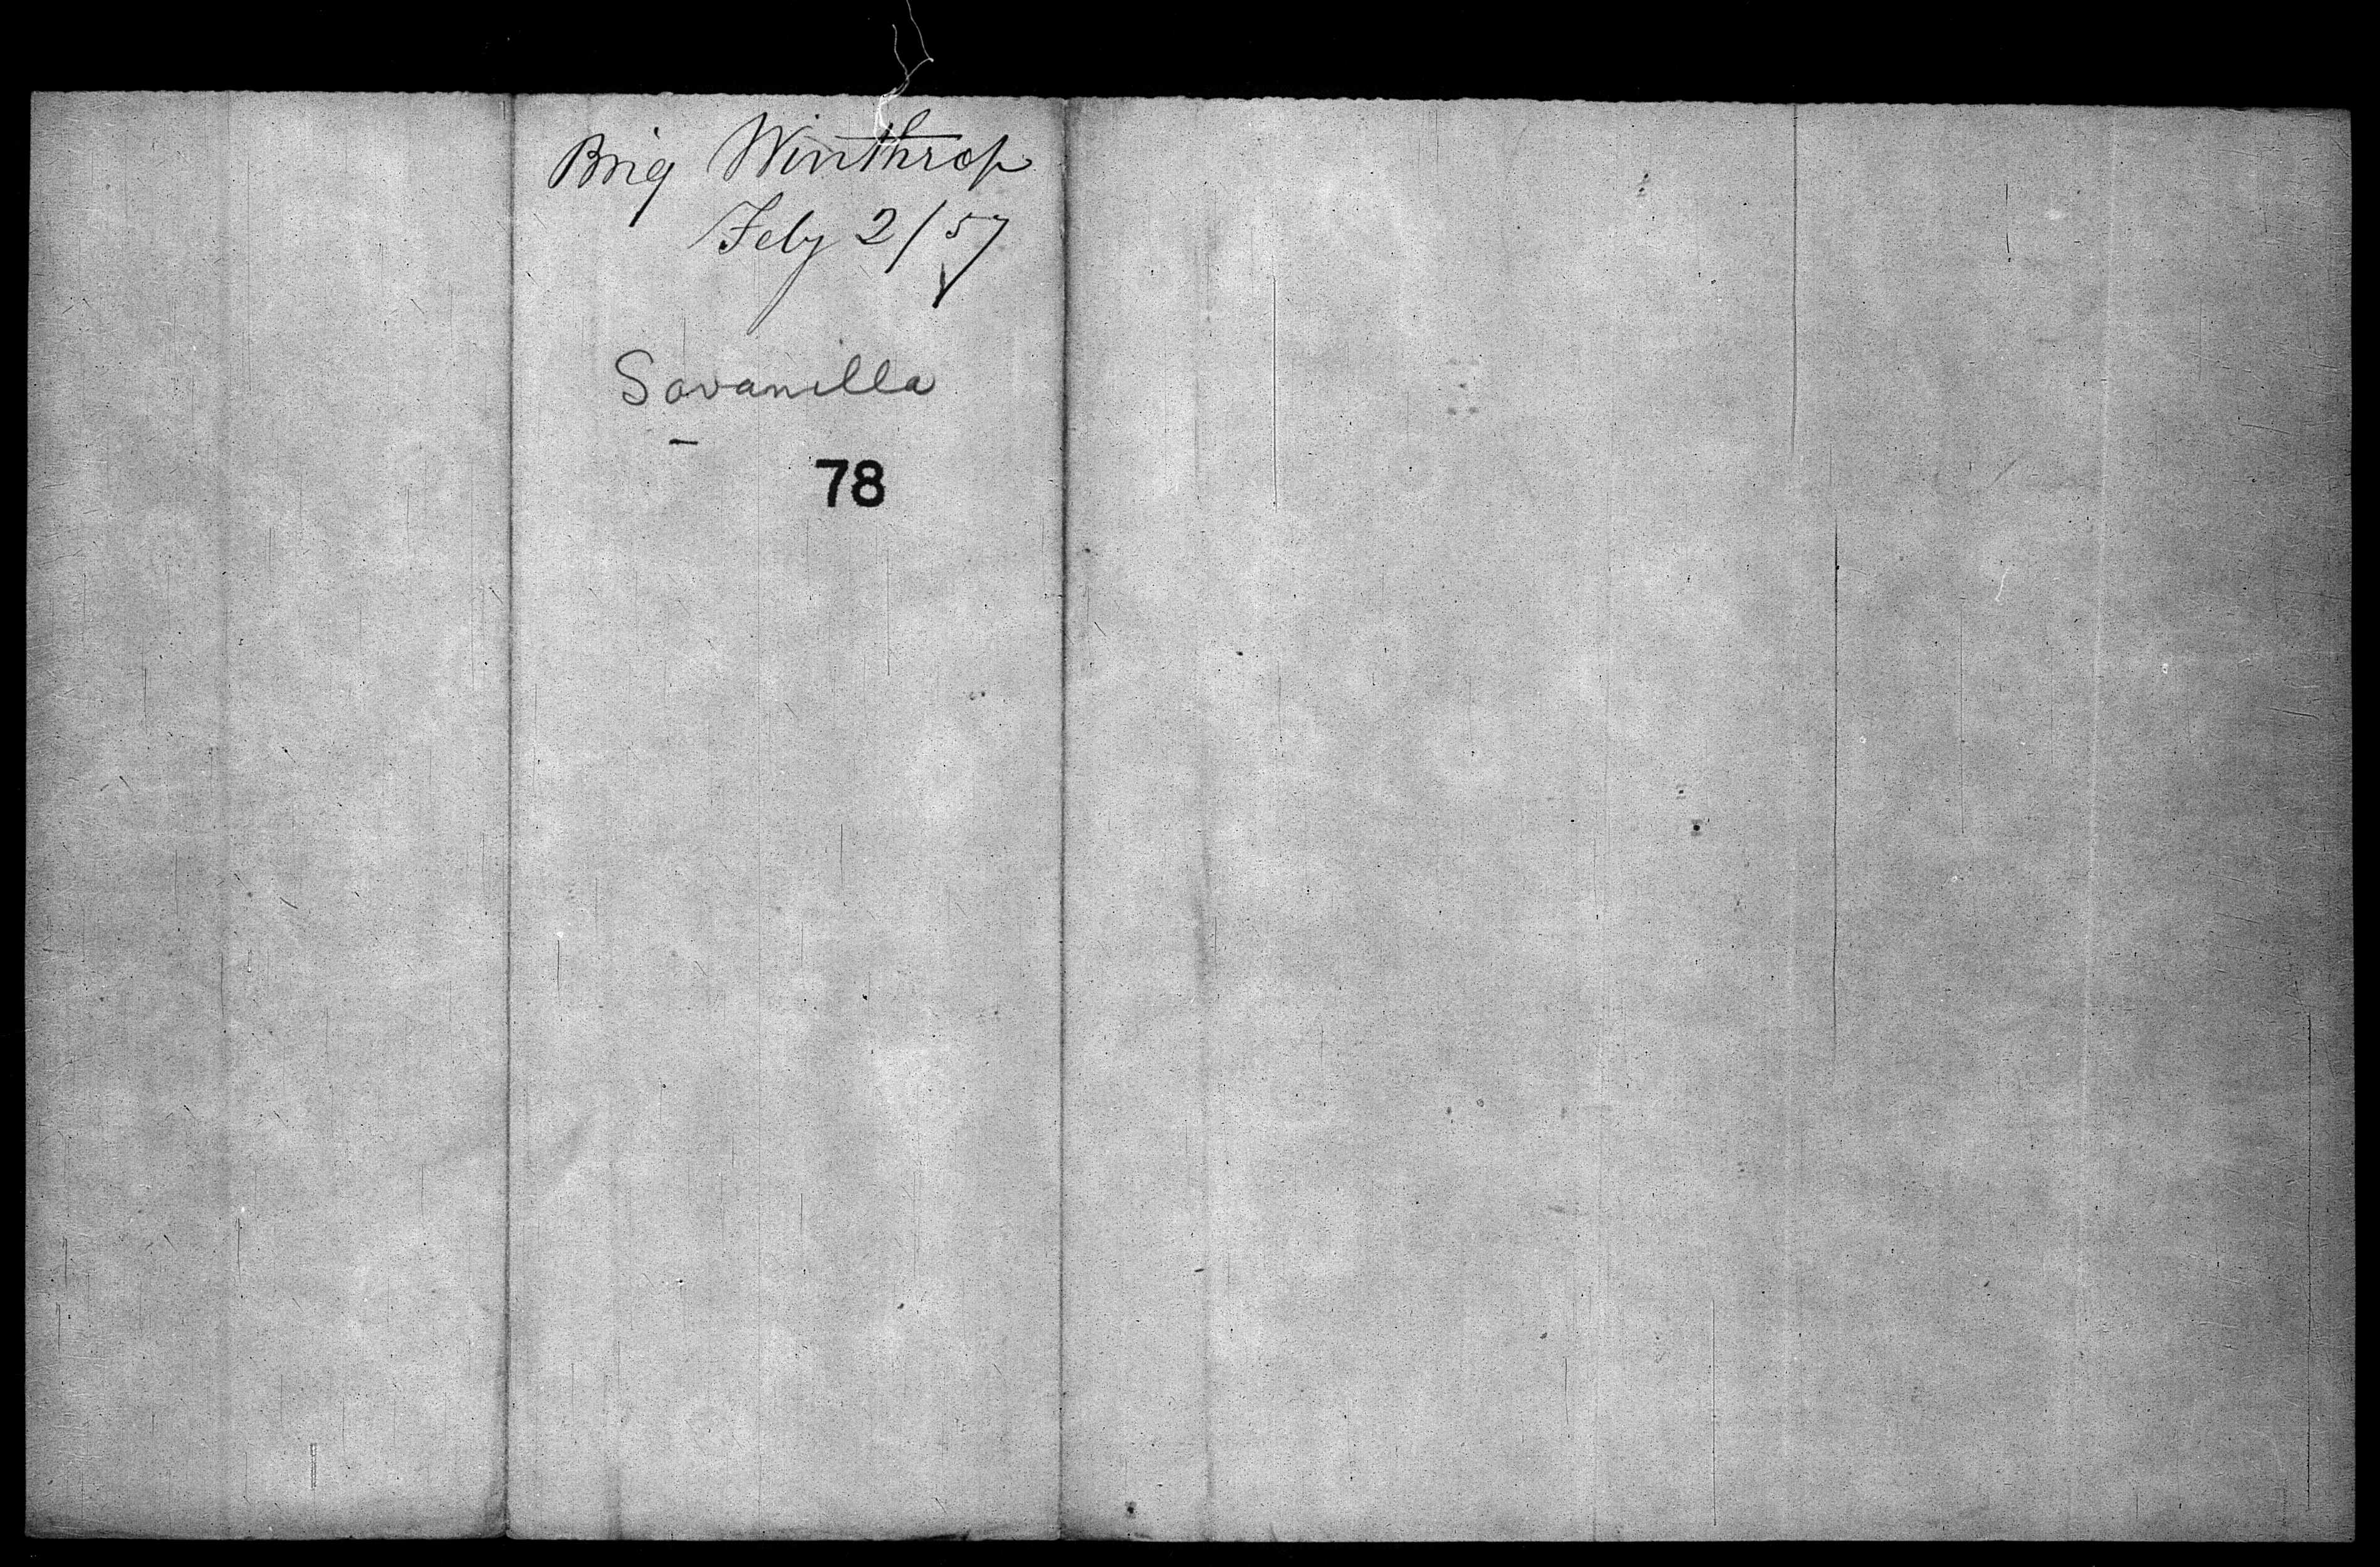 Brig Winthrop
Feby 2/57
Savanilla
78